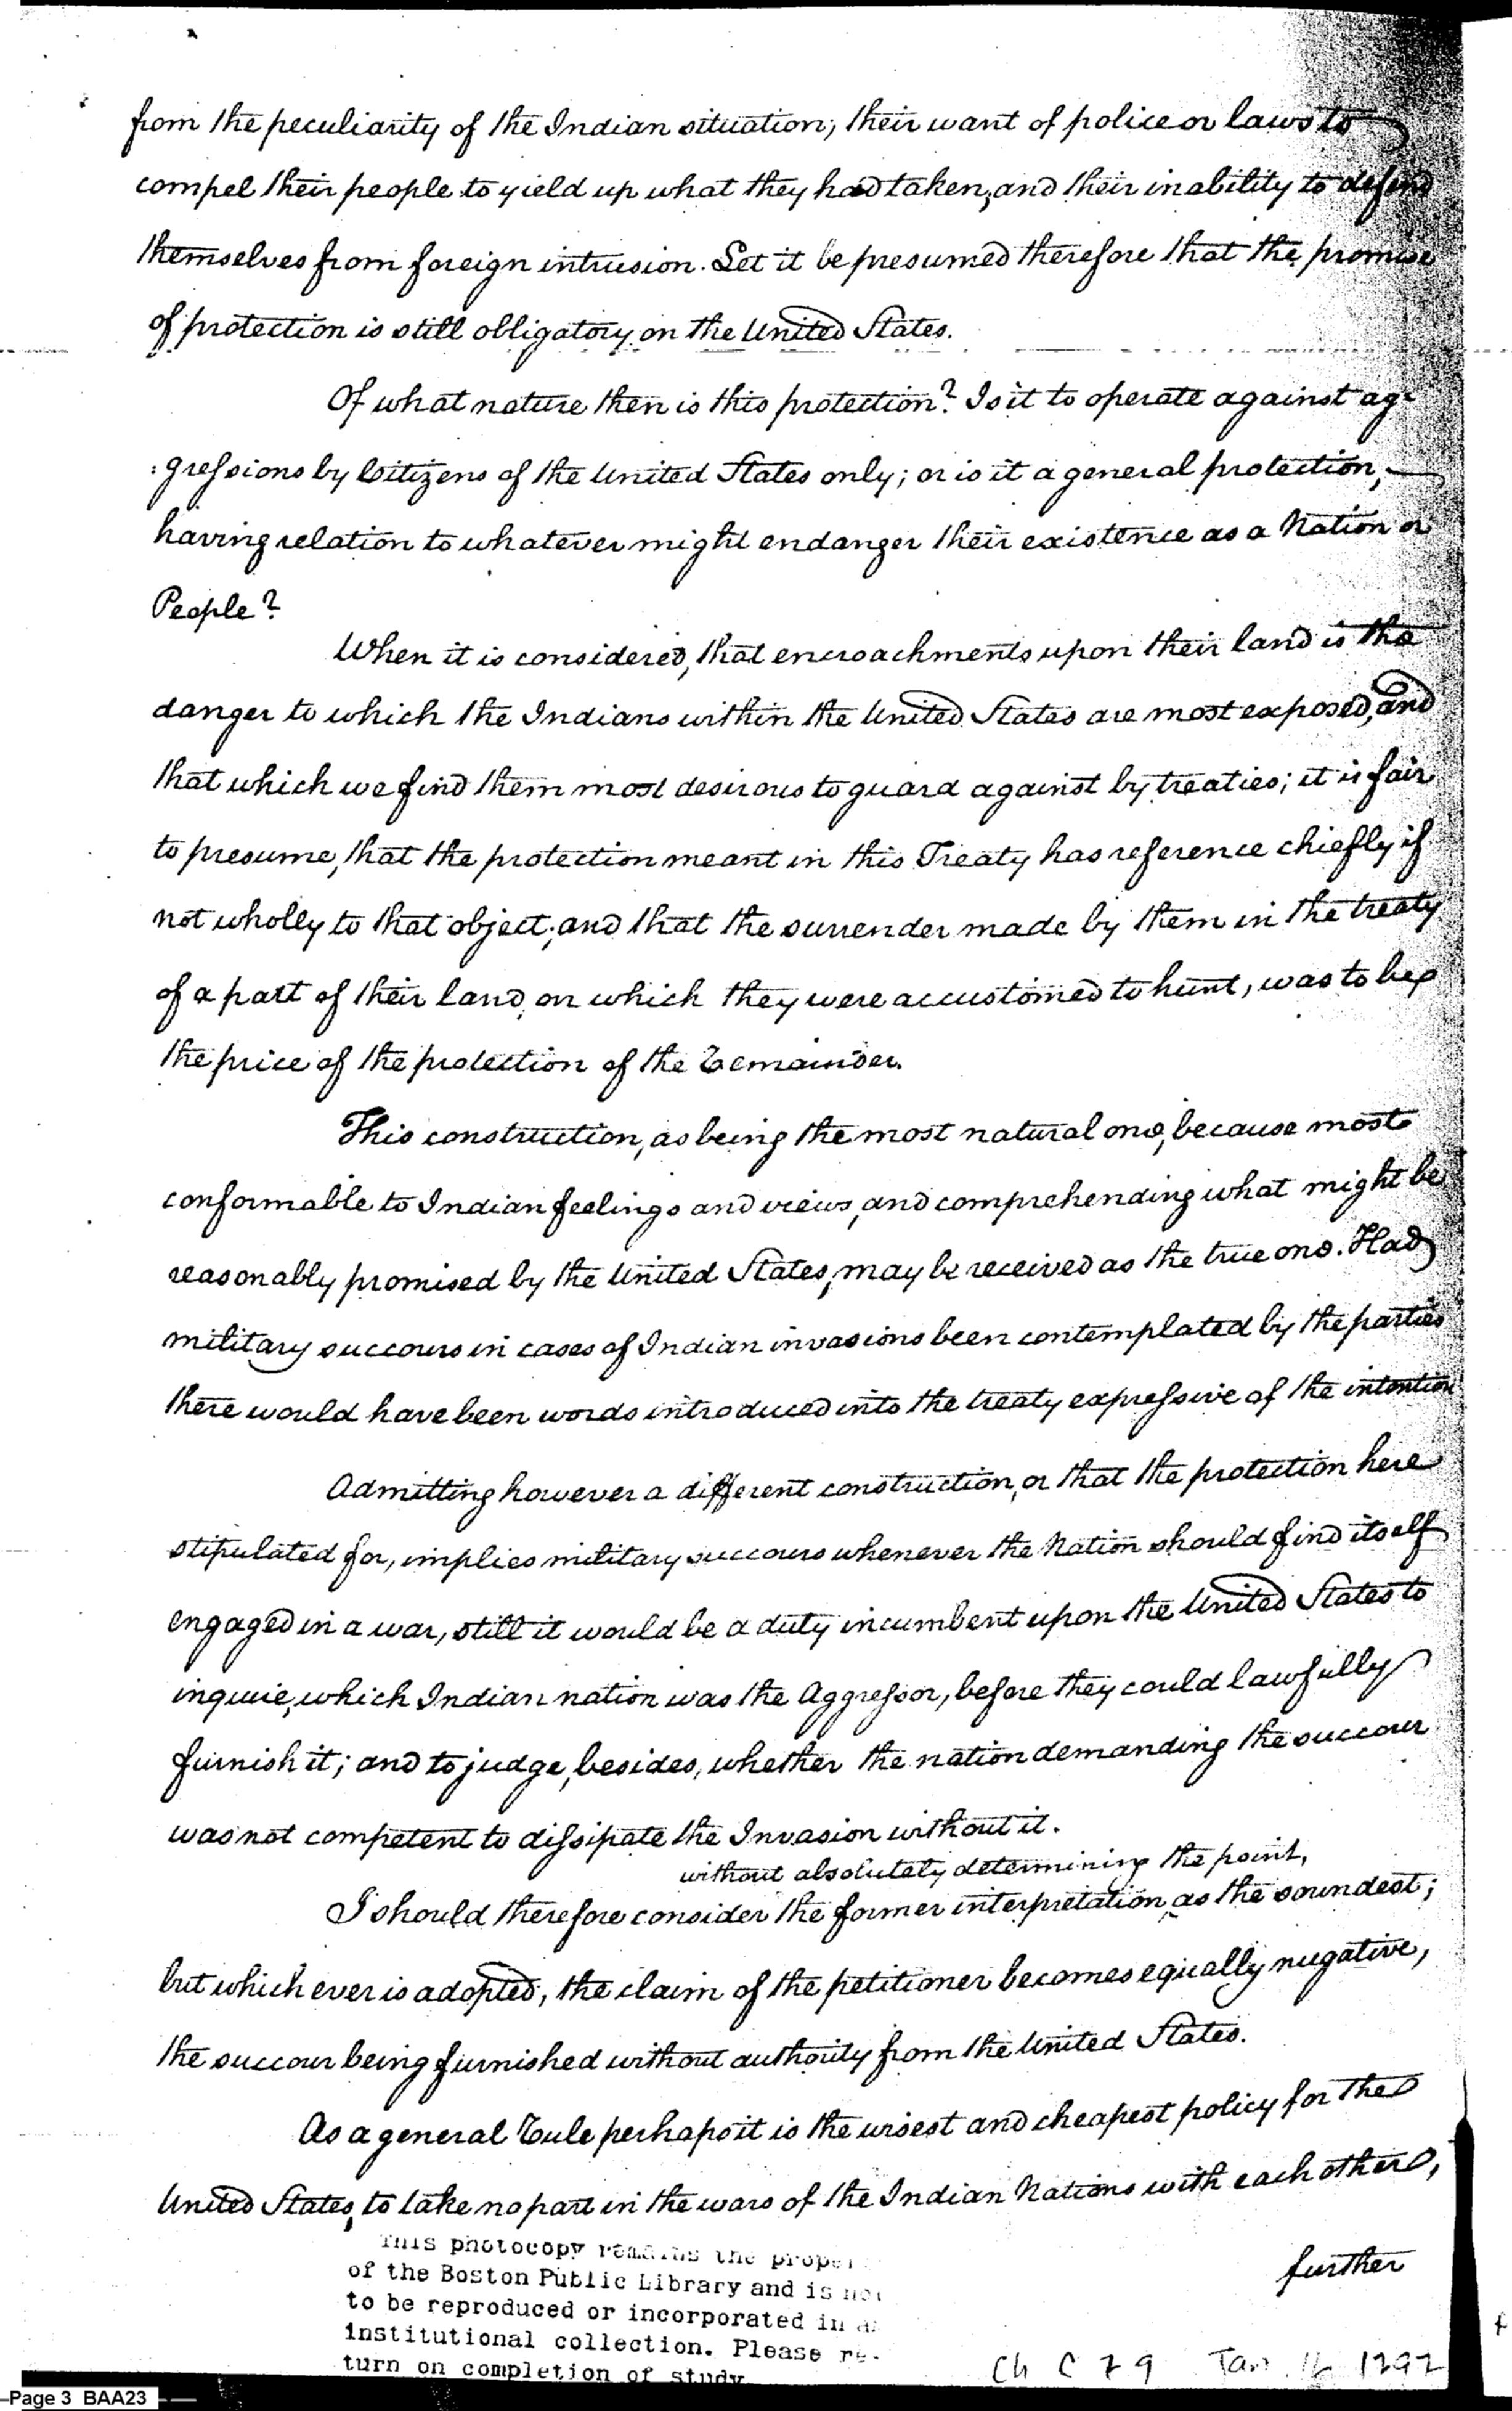 from the peculiarity of the Indian situation; their want of police or laws to
compel their people to yield up what they had taken, and their inability to defend
themselves from foreign intrusion. Let it be presumed therefore that the promise
of protection is still obligatory on the United States.
Of what nature then is this protection? Is it to operate against ag-
:gressions by Citizens of the United States only; or is it a general protection,
having relation to whatever might endanger their existence as a Nation or
People?
When it is considered, that encroachments upon their land is the
danger to which the Indians within the United States are most exposed, and
that which we find them most desirous to guard against by treaties; it is fair
to presume, that the protection meant in this Treaty has reference chiefly if
not wholly to that object; and that the surrender made by them in the treaty
of a part of their land, on which they were accustomed to hunt, was to be
the price of the protection of the Remainder.
This construction, as being the most natural one, because most
conformable to Indian feelings and views, and comprehending what might be
reasonably promised by the United States, may be received as the true one. Had
military succours in cases of Indian invasions been contemplated by the parties
there would have been words introduced into the treaty expressive of the intention
Admitting however a different construction, or that the protection here
stipulated for, implies military succours whenever the Nation should find itself
engaged in a war, still it would be a duty incumbent upon the United States to
inquire, which Indian nation was the Aggressor, before they could lawfully
furnish it; and to judge, besides, whether the nation demanding the succour
was not competent to dissipate the Invasion without it.
without absolutely determining the point,
I should therefore consider the former interpretation as the soundest;
but which ever is adopted, the claim of the petitioner becomes equally nugative,
the succour being furnished without authority from the United States.
As a general Rule perhaps it is the wisest and cheapest policy for the
United States, to take no part in the wars of the Indian Nations with each other,
further
This photocopy remains the proper
of the Boston Public Library and is not
to be reproduced or incorporated in
institutional collection. Please re-
turn on completion of study.
Ch C 79 Jan. 16 1797
Page 3 BAA23